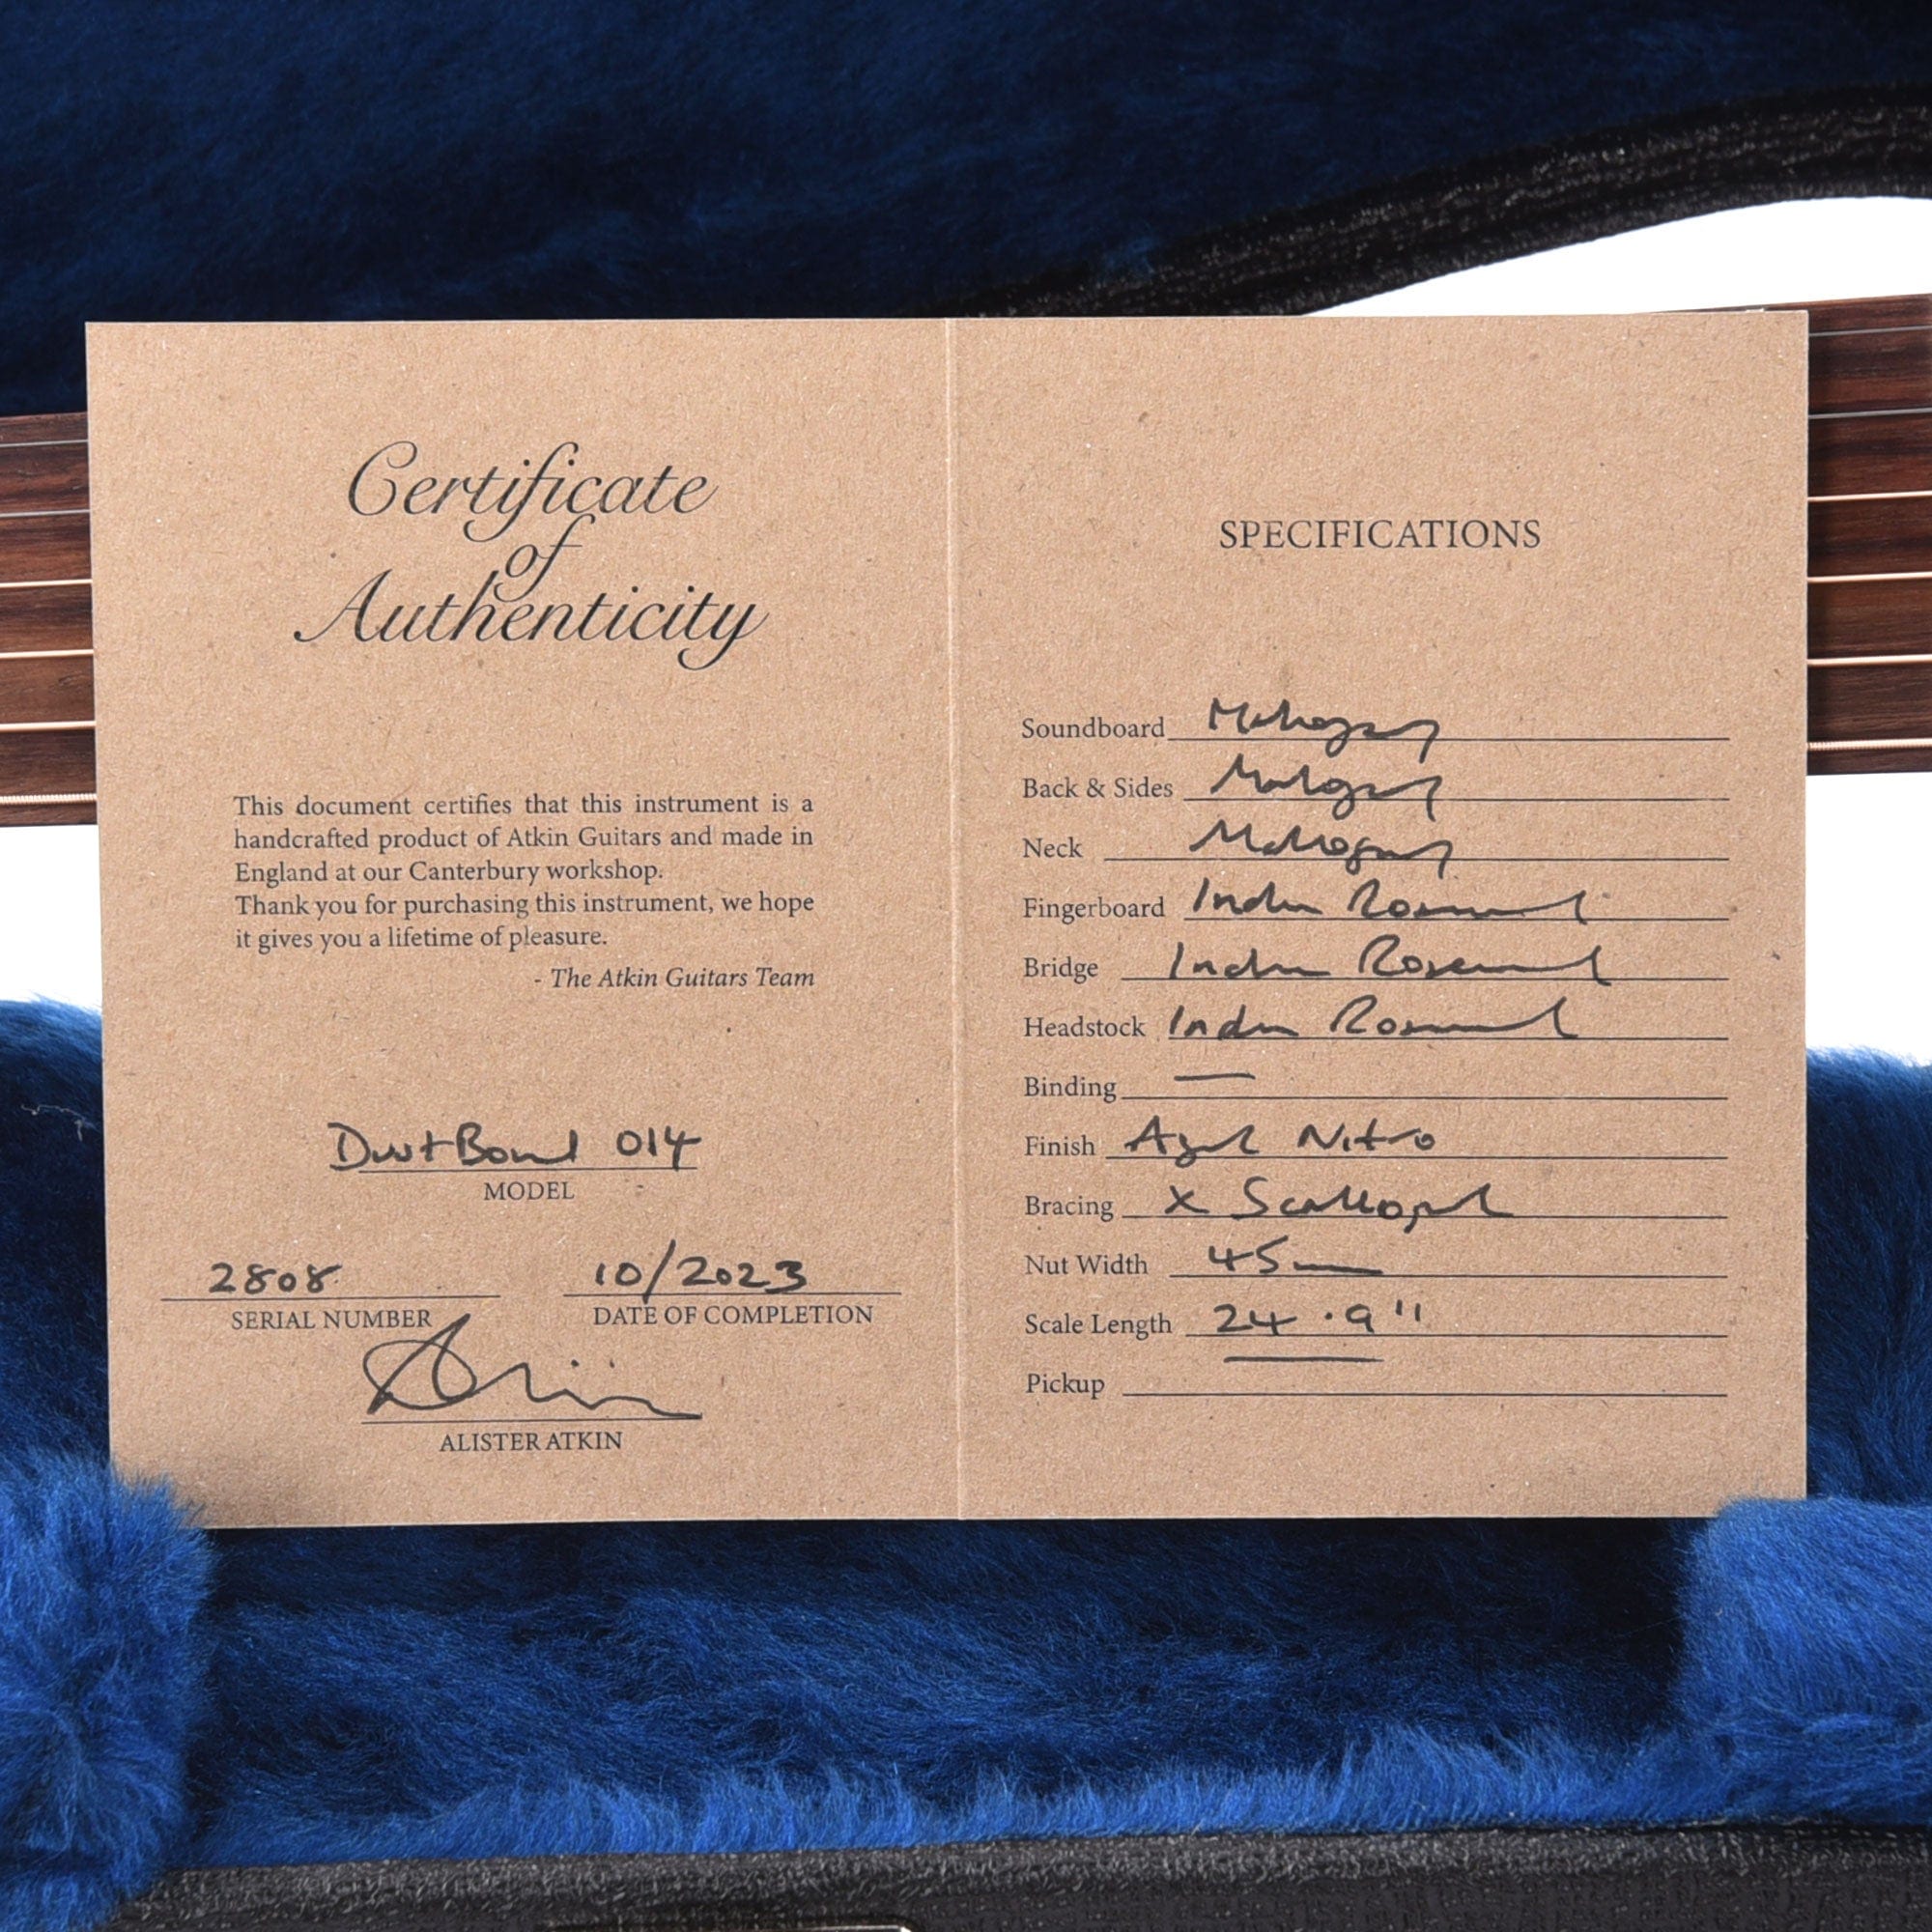 Certificate
of
Authenticity
This document certifies that this instrument is a
handcrafted product of Atkin Guitars and made in
England at our Canterbury workshop.
Thank you for purchasing this instrument, we hope
it gives you a lifetime of pleasure.
- The Atkin Guitars Team
DustBowl 014
MODEL
2808
SERIAL NUMBER
10/2023
DATE OF COMPLETION
ALISTER ATKIN
SPECIFICATIONS
Soundboard Mahogany
Back & Sides Mahogany
Neck Mahogany
Fingerboard Indian Rosewood
Bridge Indian Rosewood
Headstock Indian Rosewood
Binding —
Finish Aged Nitro
Bracing X Scalloped
Nut Width 45mm
Scale Length 24.9"
Pickup —